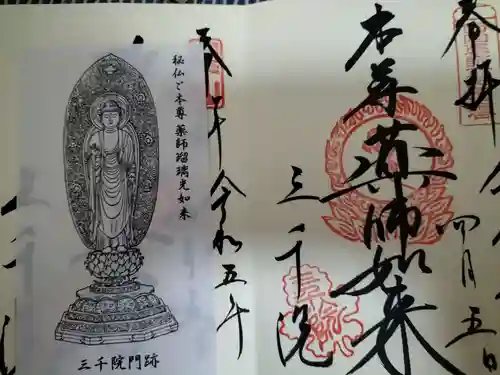 奉拝
四月五日
本尊薬師如来
三千院
令和五年
秘仏ご本尊 薬師瑠璃光如来
三千院門跡